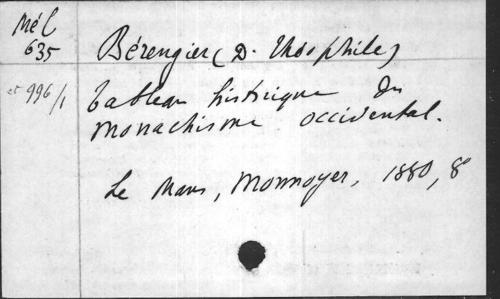 Mél
635
Bérengier (D. Théophile)
et 996/1
Tableau historique du
monachisme occidental.
Le Mans, Monnoyer, 1880, 8°